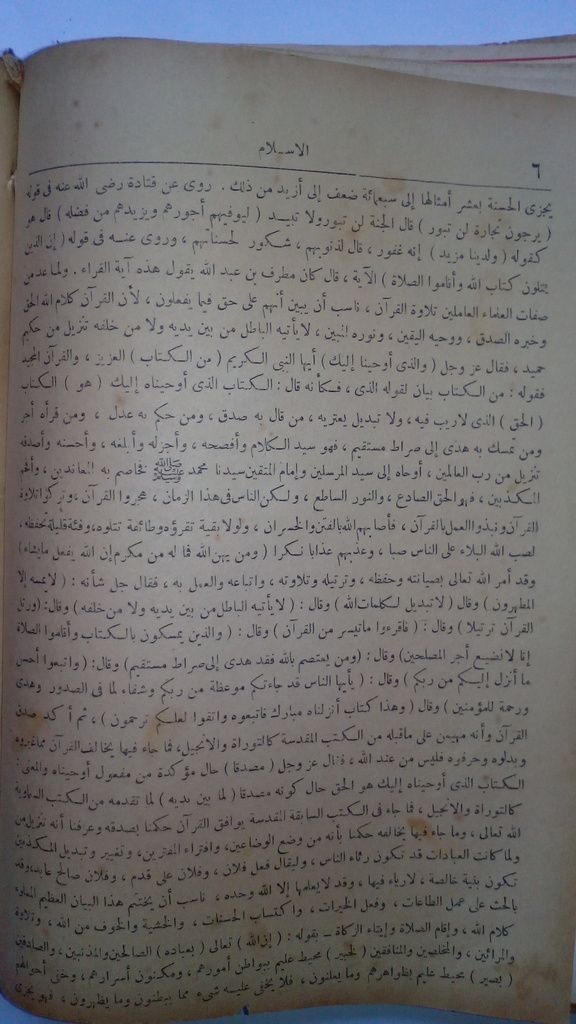 الاسلام
٦
يجزى الحسنة بعشر أمثالها إلى سبعمائة ضعف إلى أزيد من ذلك . روى عن قتادة رضى الله عنه فى قوله
( يرجون تجارة لن تبور ) قال الجنة لن تبور ولا تبيد ( ليوفيهم أجورهم ويزيدهم من فضله ) قال هو
كقوله ( ولدينا مزيد ) إنه غفور ، قال لذنوبهم ، شكور لحسناتهم ، وروى عنه فى قوله ( إن الذين
يتلون كتاب الله وأقاموا الصلاة ) الآية ، قال كان مطرف بن عبد الله يقول هذه آية القراء . ولما عد من
صفات العلماء العاملين تلاوة القرآن ، ناسب أن يبين أنهم على حق فيما يفعلون ، لأن القرآن كلام الله الحق
وخبره الصدق ، ووحيه اليقين ، ونوره المبين ، لايأتيه الباطل من بين يديه ولا من خلفه تنزيل من حكيم
حميد ، فقال عز وجل ( والذى أوحينا إليك ) أيها النبى الكريم ( من الكتاب ) العزيز ، والقرآن المجيد
فقوله : من الكتاب بيان لقوله الذى ، فكأنه قال : الكتاب الذى أوحيناه إليك ( هو ) الكتاب
( الحق ) الذى لاريب فيه ، ولا تبديل يعتريه ، من قال به صدق ، ومن حكم به عدل ، ومن قرأه أجر
ومن تمسك به هدى إلى صراط مستقيم ، فهو سيد الكلام وأفصحه ، وأجزله وأبلغه ، وأحسنه وأصدقه
تنزيل من رب العالمين ، أوحاه إلى سيد المرسلين وإمام المتقين سيدنا محمد ﷺ فخاصم به المعاندين ، وأفحم
المكذبين ، فهو الحق الصادع ، والنور الساطع ، ولكن الناس فى هذا الزمان ، هجروا القرآن ، وتركوا تلاوة
القرآن ونبذوا العمل بالقرآن ، فأصابهم الله بالفتن والخسران ، ولولا بقية تقرؤه وطائفة تتلوه ، وفئة قليلة تحفظه ،
لصب الله البلاء على الناس صبا ، وعذبهم عذابا نكرا ( ومن يهن الله فما له من مكرم إن الله يفعل مايشاء )
وقد أمر الله تعالى بصيانته وحفظه ، وترتيله وتلاوته ، واتباعه والعمل به ، فقال جل شأنه : ( لايمسه إلا
المطهرون ) وقال ( لاتبديل لكلمات الله ) وقال : ( لايأتيه الباطل من بين يديه ولا من خلفه ) وقال : ( ورتل
القرآن ترتيلا ) وقال : ( فاقرءوا ماتيسر من القرآن ) وقال : ( والذين يمسكون بالكتاب وأقاموا الصلاة
إنا لانضيع أجر المصلحين ) وقال : ( ومن يعتصم بالله فقد هدى إلى صراط مستقيم ) وقال : ( واتبعوا أحسن
ما أنزل إليكم من ربكم ) وقال : ( يأيها الناس قد جاءتكم موعظة من ربكم وشفاء لما فى الصدور وهدى
ورحمة للمؤمنين ) وقال ( وهذا كتاب أنزلناه مبارك فاتبعوه واتقوا لعلكم ترحمون ) ، ثم أكد صدق
القرآن وأنه مهيمن على ماقبله من الكتب المقدسة كالتوراة والانجيل ، فما جاء فيها يخالف القرآن مما غيروه
وبدلوه وحرفوه فليس من عند الله ، فقال عز وجل ( مصدقا ) حال مؤكدة من مفعول أوحيناه والمعنى :
الكتاب الذى أوحيناه إليك هو الحق حال كونه مصدقا ( لما بين يديه ) لما تقدمه من الكتب السماوية
كالتوراة والانجيل ، فما جاء فى الكتب السابقة المقدسة يوافق القرآن حكمنا بصدقه وعرفنا أنه تنزيل من
الله تعالى ، وما جاء فيها يخالفه حكمنا بأنه من وضع الوضاعين ، وافتراء المفترين ، وتغيير وتبديل المكذبين
ولما كانت العبادات قد تكون رئاء الناس ، وليقال فعل فلان ، وفلان على قدم ، وفلان صالح عابد ، وقد
تكون بنية خالصة ، لارياء فيها ، وقد لايعلمها إلا الله وحده ، ناسب أن يختتم هذا البيان العظيم المملوء
بالحث على عمل الطاعات ، وفعل الخيرات ، واكتساب الحسنات ، والخشية والخوف من الله ، وتلاوة
كلام الله ، وإقام الصلاة وإيتاء الزكاة ــ بقوله : ( إن الله ) تعالى ( بعباده ) الصالحين والمذنبين ، والصادقين
والمرائين ، والمخلصين والمنافقين ( لخبير ) محيط عليم ببواطن أمورهم ، ومكنون أسرارهم ، وخفى أحوالهم
( بصير ) محيط عليم بظواهرهم وما يعلنون ، فلا يخفى عليه شىء مما يبطنون وما يظهرون ، فهو يجزى